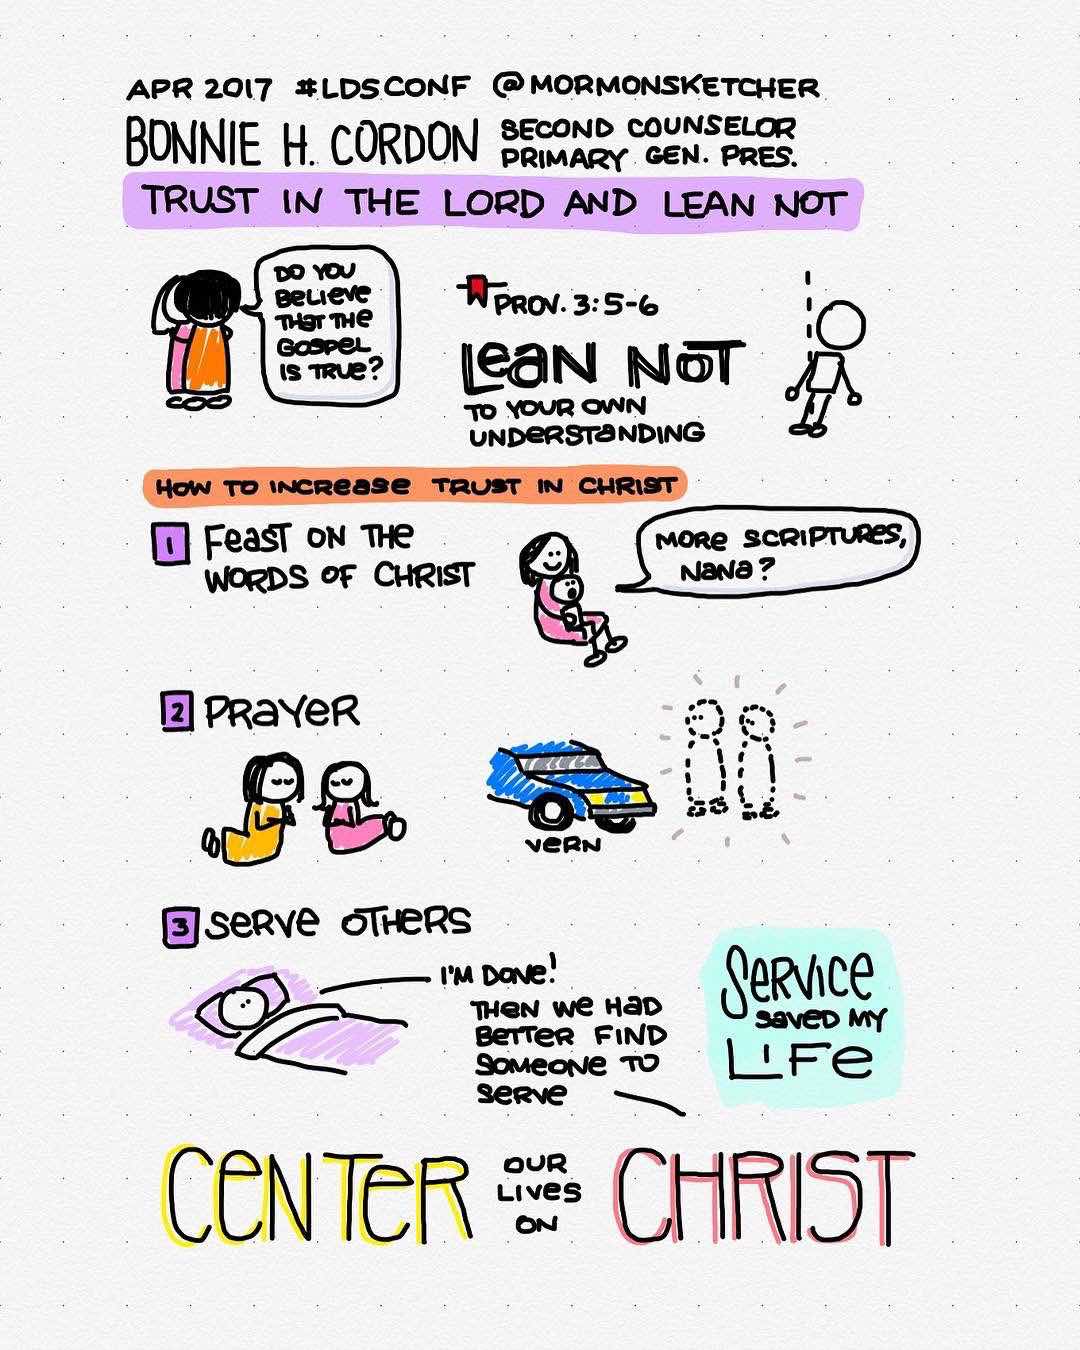 APR 2017 #LDSCONF @MORMONSKETCHER
BONNIE H. CORDON SECOND COUNSELOR
PRIMARY GEN. PRES.
TRUST IN THE LORD AND LEAN NOT
DO YOU
BELIEVE
THAT THE
GOSPEL
IS TRUE?
PROV. 3:5-6
LEAN NOT
TO YOUR OWN
UNDERSTANDING
HOW TO INCREASE TRUST IN CHRIST
1 FEAST ON THE
WORDS OF CHRIST
MORE SCRIPTURES,
NANA?
2 PRAYER
VERN
3 SERVE OTHERS
I'M DONE!
THEN WE HAD
BETTER FIND
SOMEONE TO
SERVE
SERVICE
SAVED MY
LIFE
CENTER OUR
LIVES
ON CHRIST